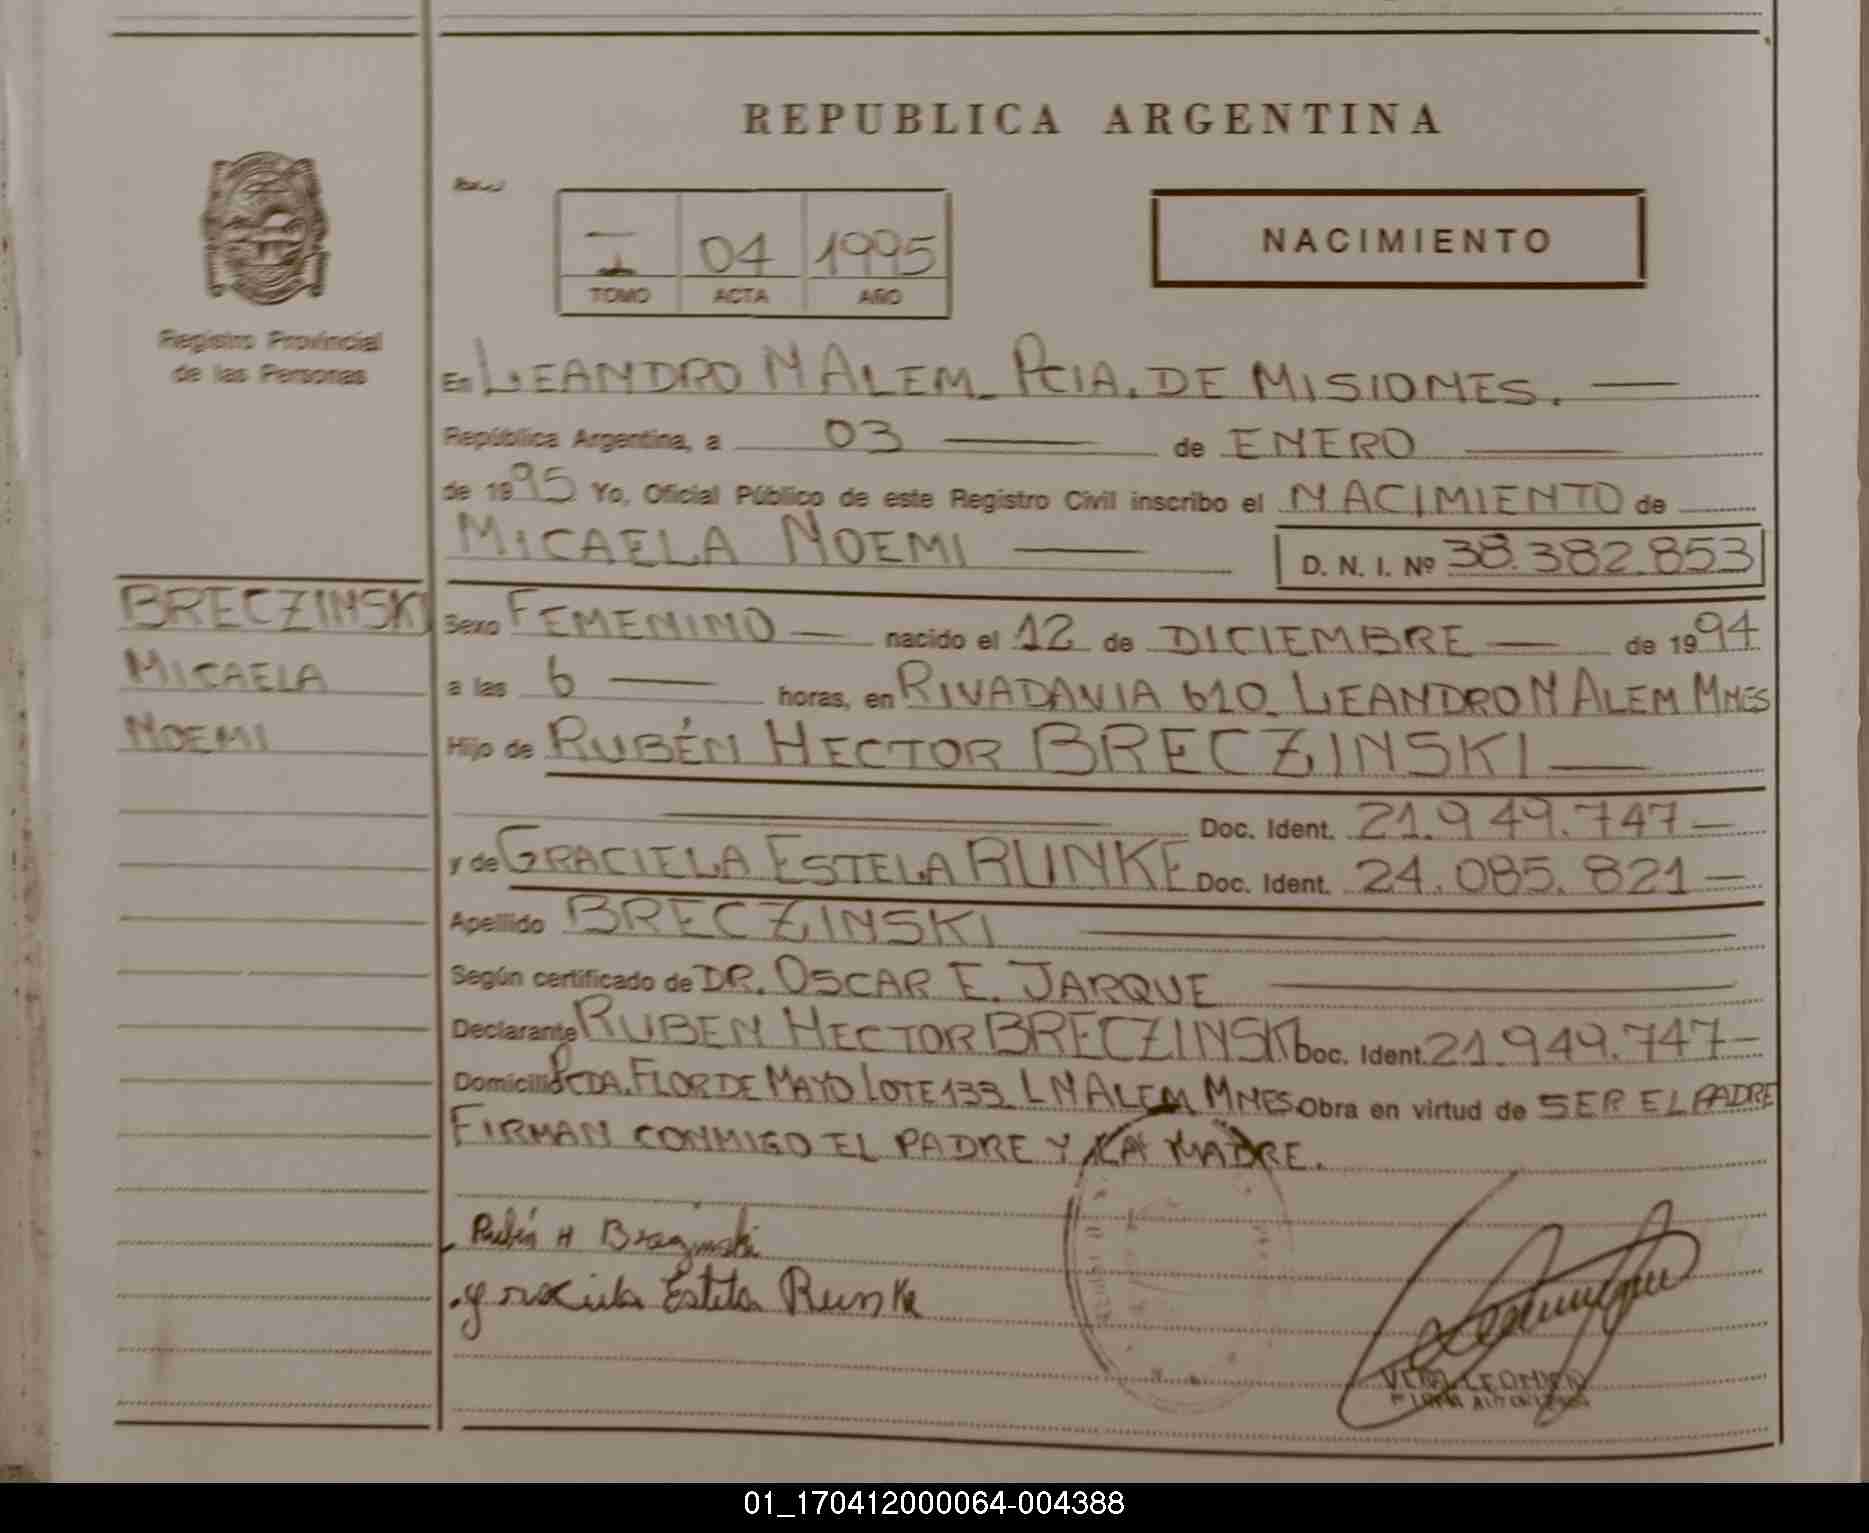 REPUBLICA ARGENTINA
I 04 1995
TOMO ACTA AÑO
NACIMIENTO
Registro Provincial
de las Personas
En LEANDRO N ALEM_ PCIA. DE MISIONES.
República Argentina, a 03 de ENERO
de 1995 Yo, Oficial Público de este Registro Civil inscribo el NACIMIENTO de
MICAELA NOEMI D. N. I. Nº 38.382.853
BRECZINSKI
MICAELA
NOEMI
Sexo FEMENINO nacido el 12 de DICIEMBRE de 1994
a las 6 horas, en RIVADAVIA 610_ LEANDRO N ALEM MNES
Hijo de RUBÉN HECTOR BRECZINSKI
Doc. Ident. 21.949.747
y de GRACIELA ESTELA RUNKE Doc. Ident. 24.085.821
Apellido BRECZINSKI
Según certificado de DR. OSCAR E. JARQUE
Declarante RUBEN HECTOR BRECZINSKI Doc. Ident. 21.949.747
Domicilio PCDA. FLOR DE MAYO LOTE 133_ L N ALEM MNES. Obra en virtud de SER EL PADRE
FIRMAN CONMIGO EL PADRE Y LA MADRE.
Rubén H Breczinski
Graciela Estela Runke
01_170412000064-004388